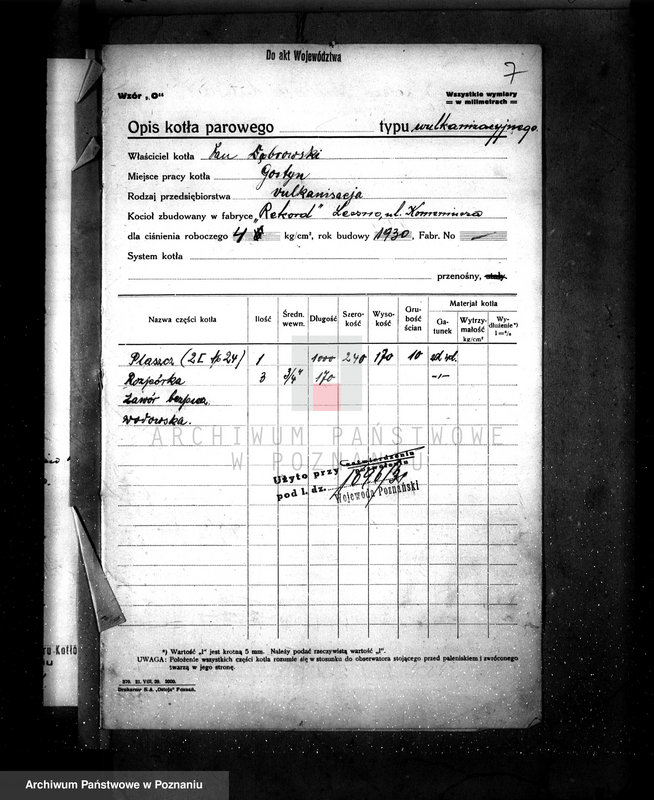 Do akt Województwa
7
Wzór „O“
Wszystkie wymiary
w milimetrach
Opis kotła parowego typu wulkanizacyjnego.
Właściciel kotła Jan Dąbrowski
Miejsce pracy kotła Gostyn
Rodzaj przedsiębiorstwa vulkanisacja
Kocioł zbudowany w fabryce „Rekord" Leszno, ul. Komeniusza
dla ciśnienia roboczego 4 kg/cm², rok budowy 1930, Fabr. No —
System kotła
przenośny, stały.
Nazwa części kotła Ilość Średn. wewn. Długość Szerokość Wysokość Grubość ścian Materjał kotła
Gatunek Wytrzymałość kg/cm² Wydłużenie*) l = %
Płaszcz (2 I 24) 1 1000 240 170 10
Rozpórka 3 3/4" 170 -"-
Zawór bezpiecz.
wodowska.
ARCHIWUM PAŃSTWOWE
W POZNANIU
Użyto przy zaświadczenia
pod l. dz.
Wojewoda Poznański
*) Wartość „l" jest krotną 5 mm. Należy podać rzeczywistą wartość „l".
UWAGA: Położenie wszystkich części kotła rozumie się w stosunku do obserwatora stojącego przed paleniskiem i zwóconego
twarzą w jego stronę.
870. 21. VIII. 29. 2000.
Drukarnia S.A. „Ostoja" Poznań.
Archiwum Państwowe w Poznaniu